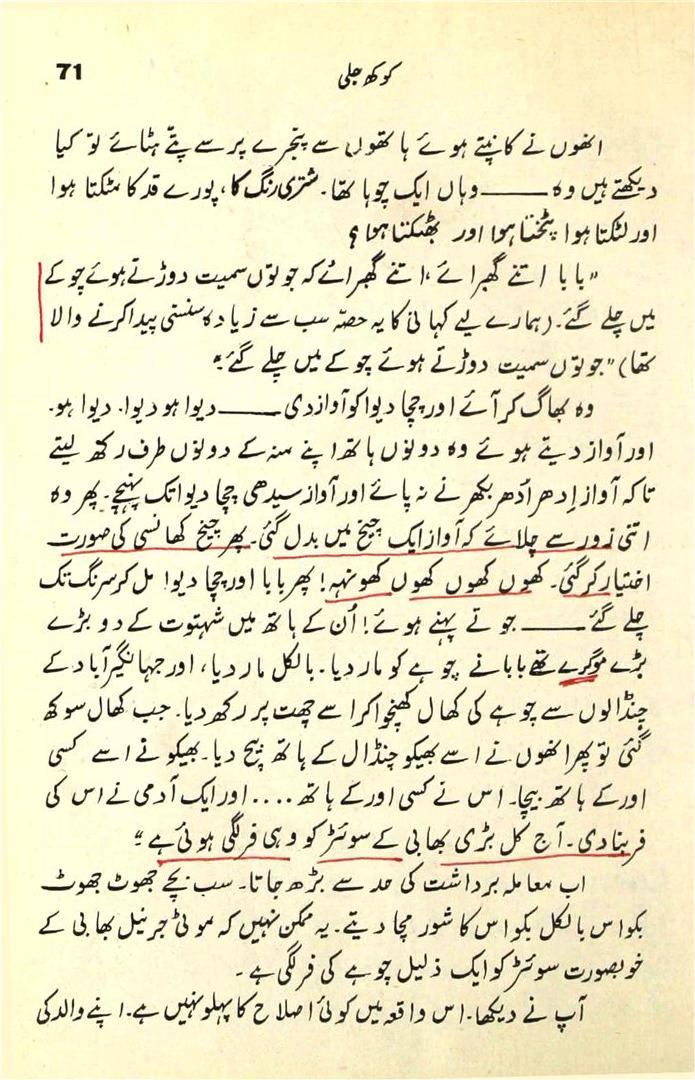 71
کوکھ جلی
انھوں نے کانپتے ہوئے ہاتھوں سے پنجرے پر سے پتّے ہٹائے تو کیا
دیکھتے ہیں وہ ——— وہاں ایک چوہا تھا۔ شتری رنگ کا، پورے قد کا مٹکتا ہوا
اور لٹکتا ہوا پٹختا ہوا اور بھٹکتا ہوا؟
"بابا اتنے گھبرائے، اتنے گھبرائے کہ جوتوں سمیت دوڑتے ہوئے چوکے
میں چلے گئے۔ (ہمارے لیے کہانی کا یہ حصّہ سب سے زیادہ سنسنی پیدا کرنے والا
تھا) "جوتوں سمیت دوڑتے ہوئے چوکے میں چلے گئے۔"
وہ بھاگ کر آئے اور چچا دیوا کو آواز دی ——— دیوا ہو دیوا۔ دیوا ہو۔
اور آواز دیتے ہوئے وہ دونوں ہاتھ اپنے منہ کے دونوں طرف رکھ لیتے
تاکہ آواز اِدھر اُدھر بکھرنے نہ پائے اور آواز سیدھی چچا دیوا تک پہنچے۔ پھر وہ
اتنی زور سے چلائے کہ آواز ایک چیخ میں بدل گئی۔ پھر چیخ کھانسی کی صورت
اختیار کر گئی۔ کھوں کھوں کھوں کھونہہ! پھر بابا اور چچا دیوا! مل کر سرنگ تک
چلے گئے ——— جوتے پہنے ہوئے! اُن کے ہاتھ میں شہتوت کے دو بڑے
بڑے موگرے تھے بابا نے چوہے کو مار دیا۔ بالکل مار دیا، اور جہانگیر آباد کے
چنڈالوں سے چوہے کی کھال کھنچوا کر اسے چھت پر رکھ دیا۔ جب کھال سوکھ
گئی تو پھر انھوں نے اسے بھیکو چنڈال کے ہاتھ بیچ دیا۔ بھیکو نے اسے کسی
اور کے ہاتھ بیچا۔ اس نے کسی اور کے ہاتھ .... اور ایک آدمی نے اس کی
فر بنا دی۔ آج کل بڑی بھابی کے سوئٹر کو وہی فر لگی ہوئی ہے۔"
اب معاملہ برداشت کی حد سے بڑھ جاتا۔ سب بچے جھوٹ جھوٹ
بکواس بالکل بکواس کا شور مچا دیتے۔ یہ ممکن نہیں کہ موٹی جرنیل بھابی کے
خوبصورت سوئٹر کو ایک ذلیل چوہے کی فر لگی ہے۔
آپ نے دیکھا۔ اس واقعہ میں کوئی اصلاح کا پہلو نہیں ہے۔ اپنے والد کی